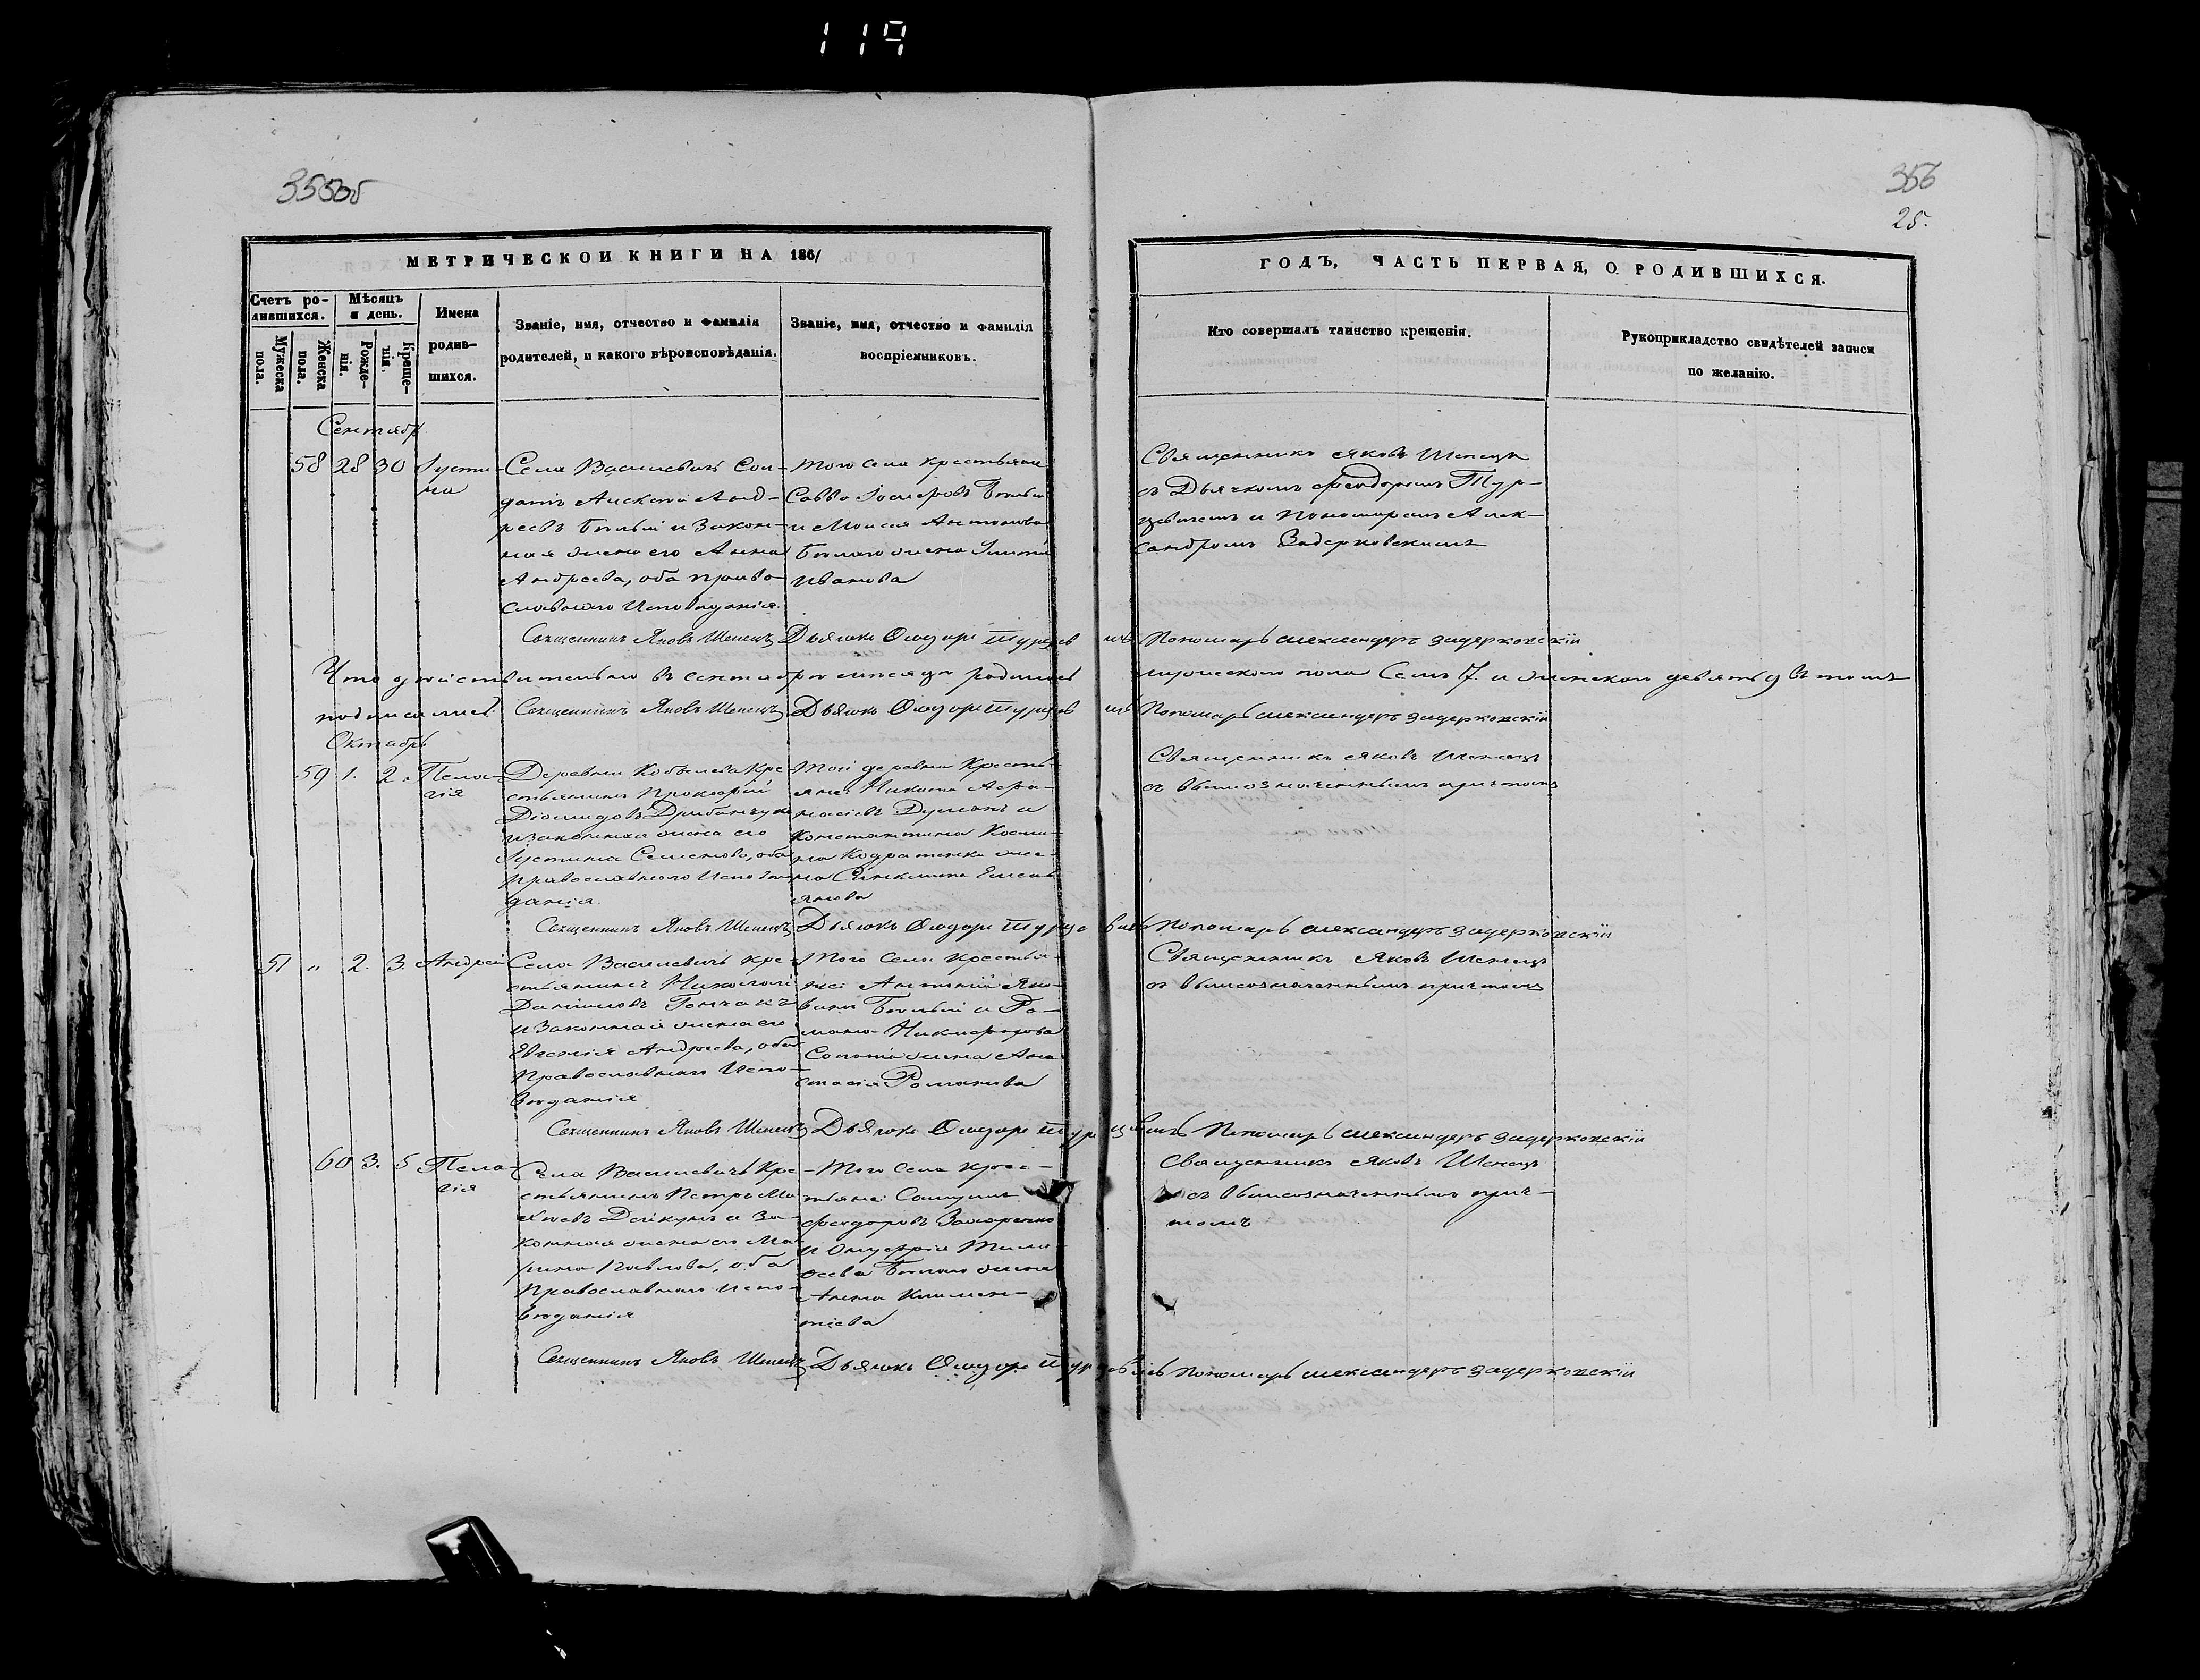 119
355об
356
25.
МЕТРИЧЕСКОЙ КНИГИ НА 1861
ГОДЪ, ЧАСТЬ ПЕРВАЯ, О РОДИВШИХСЯ.
Счетъ ро-
дившихся.
Мужеска
пола.
Женска
пола.
Мѣсяцъ
и день.
Рожде-
нія.
Креще-
нія.
Имена
родив-
шихся.
Званіе, имя, отчество и фамилія
родителей, и какого вѣроисповѣданія.
Званіе, имя, отчество и фамилія
воспріемниковъ.
Кто совершалъ таинство крещенія.
Рукоприкладство свидѣтелей записи
по желанію.
Сентябр
58 28 30
Іусти-
на
Села Василевичъ Сол-
датъ Алексѣй Анд-
реевъ Бѣлый и Закон-
ная жена его Анна
Андреева, оба право-
славнаго Исповѣданія.
того села крестьяне
Савва Бѣлы
и Моисея Антонова
Бѣлаго жена
Иванова
Священникъ Яковъ Шепецъ
съ Дьячкомъ Феодоромъ Тур-
цевичемъ и Пономаремъ Алек-
сандромъ Задерковскимъ
Священникъ Яковъ Шепецъ Дьячокъ Ѳеодоръ Турцевичъ Пономарь Александръ Задерковскій
Что дѣйствительно въ сентябрѣ мѣсяцѣ родилось мужескаго пола Семь 7. и женскаго девять 9 въ томъ
подписались. Священникъ Яковъ Шепецъ Дьячокъ Ѳеодоръ Турцевичъ Пономарь Александръ Задерковскій
Октябрь
59 1. 2.
Пела-
гія
Деревни Кобылева кре-
стьянинъ Прокофій
Діомидовъ
и законная жена его
Іустина Семенова, оба
Православнаго Исповѣ-
данія.
Той деревни Кресть-
яне: Никита Афа-
насіевъ и
Константина Косми-
на Кодратенка же-
на
янова
Священникъ Яковъ Шепецъ
съ вышеозначеннымъ причтомъ
Священникъ Яковъ Шепецъ Дьячокъ Ѳеодоръ Турцевичъ Пономарь Александръ Задерковскій
51 „ 2. 3.
Андрей
Села Василевичъ кре-
стьянинъ Николай
Даниловъ Гончакъ
и Законная жена его
Евгенія Андреева, оба
Православнаго Испо-
вѣданія
Того Села крестья-
не: Антоній Яко-
влевъ Бѣлый и Ро-
мана Никифорова
жена Ана-
стасія Романова
Священникъ Яковъ Шепецъ
съ вышеозначеннымъ причтомъ
Священникъ Яковъ Шепецъ Дьячокъ Ѳеодоръ Турцевичъ Пономарь Александръ Задерковскій
60 3. 5
Пела-
гія
Села Василевичъ Кре-
стьянинъ Петръ Ма-
и за-
конная жена его Ма-
рина Павлова, оба
Православнаго Испо-
вѣданія
Того Села Крес-
тьяне: Самуилъ
Феодоровъ
и Онуфрія Тимо-
феева Бѣлаго жена
Анна Климен-
тіева
Священникъ Яковъ Шепецъ
съ вышеозначеннымъ прич-
томъ
Священникъ Яковъ Шепецъ Дьячокъ Ѳеодоръ Турцевичъ Пономарь Александръ Задерковскій